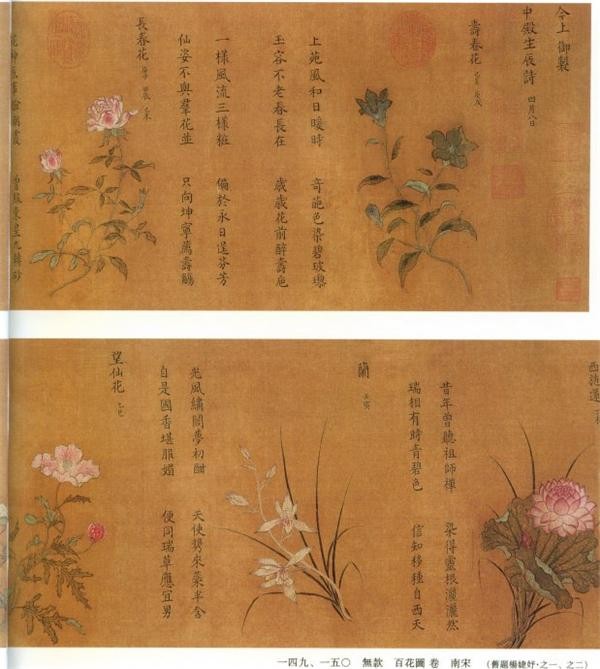 今上 御製
中殿生辰詩 四月八日
壽春花
上苑風和日暖時 奇葩色染碧玻瓈
玉容不老春長在 歲歲花前醉壽卮
一樣風流三樣粧 偏於永日逞芬芳
仙姿不與羣花並 只向坤寧薦壽觴
長春花
昔年曾聽祖師禪 染得靈根灑灑然
瑞相有時青碧色 信知移種自西天
蘭 壬寅
光風繡閣夢初酣 天使攜來蘂半含
自是國香堪服媚 便同瑞草應宜男
望仙花 乙巳
一四九、一五〇 無款 百花圖 卷 南宋 (舊題楊婕妤·之一、之二)